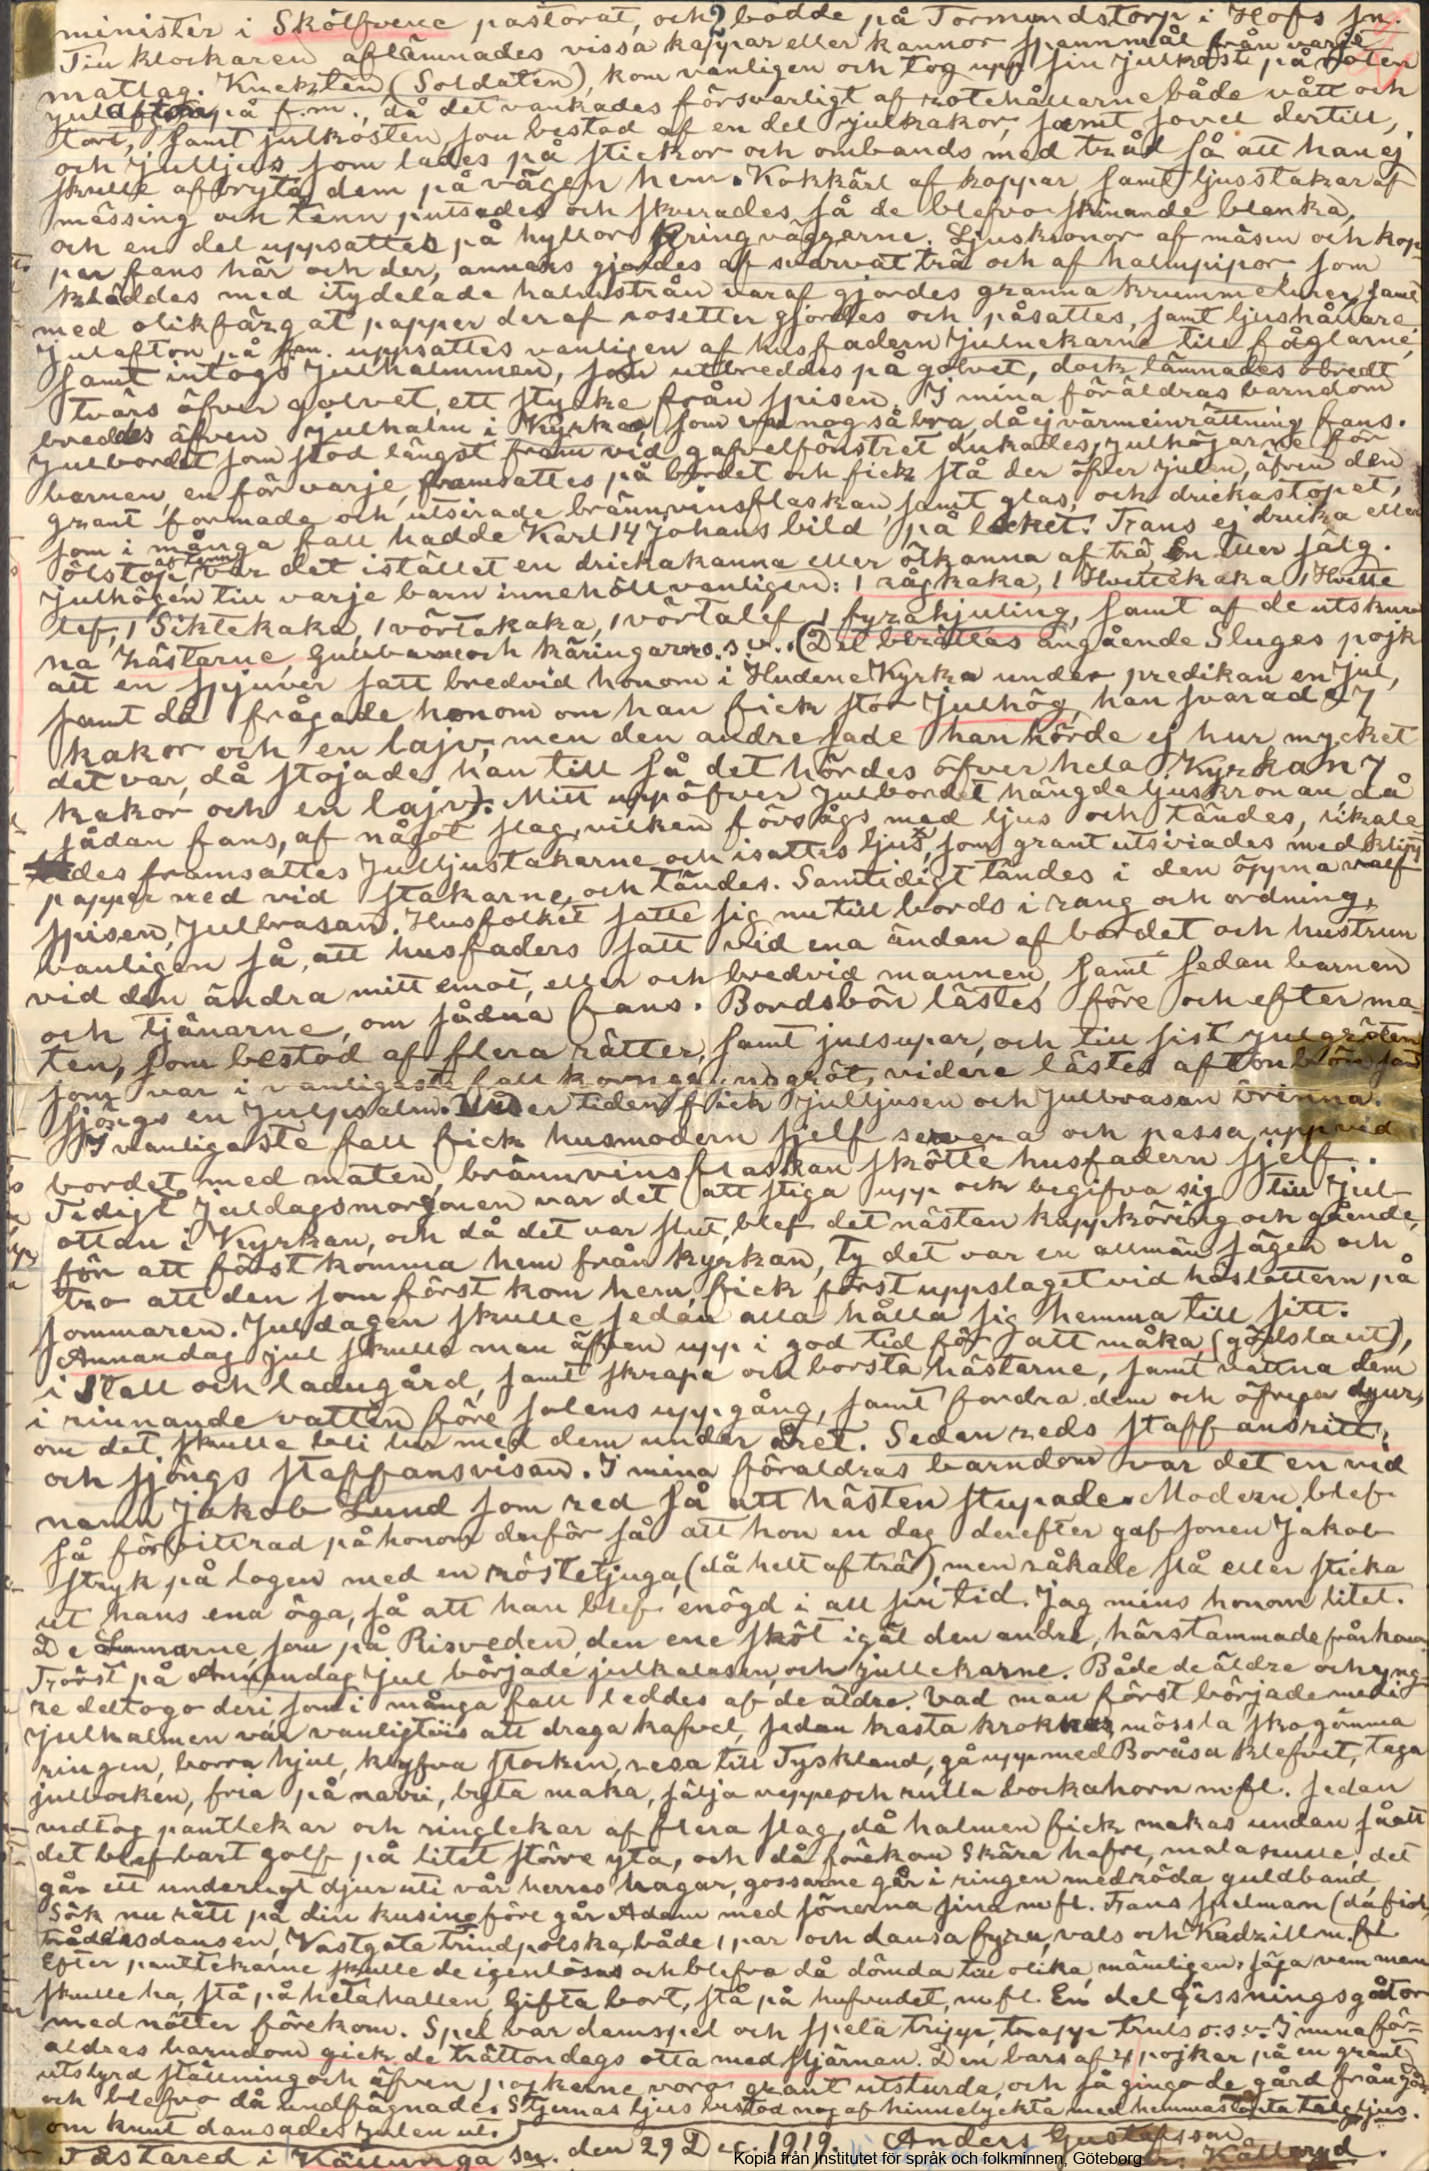 minister i Skölfvene pastorat, och? bodde på Tormundstorp i Hofs sn.
Till klockaren aflämnades vissa kappar eller kannor spannmål från varje
matlag. Knekten (Soldaten), kom vanligen och tog upp sin julkost på roten
julafton på f.m., då det vankades försvarligt af rotehållarne både vått och
tort, samt julkosten, som bestod af en del julkakor, samt sovel dertill,
och julljus som lades på stickor och ombands med tråd så att han ej
skulle afbryta dem på vägen hem. Kokkärl af koppar, samt ljusstakar af
mässing och tenn putsades och skurades så de blefvo skinande blanka,
och en del uppsattes på hyllor kring väggarne. Ljuskronor af mäsin och kop-
par fans här och der, annars gjordes af svarvat trä och af halmpipor, som
kläddes med itydelade halmstrån varaf gjordes granna krummelurer, samt
med olikfärgat papper deraf rosetter gjordes och påsattes, samt ljushållare.
Julafton på f.m. uppsattes vanligen af husfadern Julnekarne till fåglarne,
samt intogs Julhalmmen, som utbreddes på golvet, dock lämnades obredt
tvärs öfver golvet ett stycke från spisen. I mina föräldras barndom
breddes äfven julhalm i Kyrkan, som var nog så bra, då ej värmeinrättning fans.
Julbordet som stod längst fram vid gafvelfönstret dukades, julhögarne för
barnen, en för varje, framsattes på bordet och fick stå der öfver julen, äfven den
grant formade och utsirade brännvinsflaskan, samt glas, och drickastopet,
som i många fall hadde Karl 14 Johans bild på locket. Frans ej dricka eller
ölstop af tenn var det istället en drickakanna eller ölkanna af trä, En eller sälg.
Julhögen till varje barn innehöll vanligen: 1 rågkaka, 1 Hvettekaka 1 Hvette
lef, 1 Siktekaka, 1 vörtakaka, 1 vörtalef, 1 fyrahjuling, samt af de utskur-
na hästarne, Gubbarne och käringarne o.s.v. (Det berättas angående Sluges pojk
att en spjuver satt bredvid honom i Hudene Kyrka under predikan en Jul,
samt då frågade honom om han fick stor Julhög, han svarade 7
kakor och en lajv, men den andre sade han hörde ej hur mycket
det var, då stojade han till så det hördes öfver hela Kyrkan 7
kakor och en lajv). Mitt uppöfver Julbordet hängde ljuskronan då
sådan fans, af något slag, vilken försågs med ljus och tändes, likale-
des framsattes Julljustakarne och isattes ljus, som grant utsirades med klipt
papper ned vid stakarne, och tändes. Samtidigt tändes i den öppna
spisen, Julbrasan. Husfolket satte sig nu till bords i rang och ordning,
vanligen så, att husfaders satt vid ena ändan af bordet och hustrun
vid den andra mitt emot, eller och bredvid mannen, samt sedan barnen
och tjänarne, om sådna fans. Bordsbön lästes före och efter ma-
ten, som bestod af flera rätter, samt julsupar, och till sist julgröten
som var i vanligaste fall korngrynsgröt, vidare lästes aftonbön samt
sjöngs en Julpsalm. Under tiden fick Julljusen och Julbrasan brinna.
I vanligaste fall fick husmodern sjelf servera och passa upp vid
bordet med maten, brännvinsflaskan skötte husfadern sjelf.
Tidigt Juldagsmorgonen var det att stiga upp och begifva sig till Jul-
ottan i Kyrkan, och då det var slut, blef det nästan kappköring och gående,
för att först komma hem från kyrkan, ty det var en allmän sägen och
tro att den som först kom hem, fick först uppslaget vid höslåttern på
sommaren. Juldagen skulle sedan alla hålla sig hemma till sitt.
Annandag jul skulle man äfven upp i god tid för att måka (gödsla ut),
i Stall och ladugård, samt skrapa och borsta hästarne, samt vattna dem
i rinnande vatten före solens uppgång, samt fordra dem och öfriga djur,
om det skulle bli tur med dem under året. Sedan reds staffansritt,
och sjöngs staffansvisan. I mina föräldras barndom var det en vid
namn Jakob Lund som red så att hästen stupade. Modern blef
så förbittrad på honom derför så att hon en dag derefter gaf sonen Jakob
stryk på logen med en röstetjuga, (då helt af trä), men råkade slå eller sticka
ut hans ena öga, så att han blef enögd i all sin tid. Jag mins honom litet.
De Lunnarne, som på Risveden, den ene sköt igäl den andre, härstammade från honom.
Först på Annandag Jul började julkalasen, och jullekarne. Både de äldre och yng-
re deltogo deri som i många fall leddes af de äldre. Vad man först började med i
julhalmen var vanligtvis att draga kafvel, sedan kasta krokkar, mössla sko, gömma
ringen, borra hjul, klyfva stocken, resa till Tyskland, gå upp med Boråsa klefvet, taga
julbocken, fria på narri, byta maka, sälja neppe och rulla bockahorn m.fl. sedan
vidtog pantlekar och ringlekar af flera slag, då halmen fick makas undan så att
det blef bart golf på litet större yta, och då förekom Skära hafre, mala , det
går ett underligt djur uti vår herres hagar, gossarne går i ringen med röda guldband
Sök nu rätt på din kusin, före går Adam med sönerna sina m.fl. Fans spelman (då fick
trådensdansen, Västgöta trindpolska, både 1 par och dansa fyra, vals och Kadrill m.fl.
Efter pantlekarne skulle de igenlösas och blefvo då dömda till olika, nämligen: säga vem man
skulle ha, stå på heta hallen, Gifta bort, stå på hufvudet, m.fl. En del Gissningsgåtor
med nötter förekom. Spel var damspel och spela tripp, trapp truls o.s.v. I mina för-
äldras barndom gick de trättondags otta med stjärnan. Den bars af 4 pojkar på en grant
utstyrd ställning och äfven pojkarne voro grant utstyrda, och så gingo de gård från gård
och blefvo då undfägnade. Stjernas ljus bestod nog af hinnelyckta med hemmastöpta talgljus.
om knut dansades Julen ut.
Tåstared i Källunga sn. den 29 Dec. 1919. Anders Gustafsson
Kopia från Institutet för språk och folkminnen, Göteborg